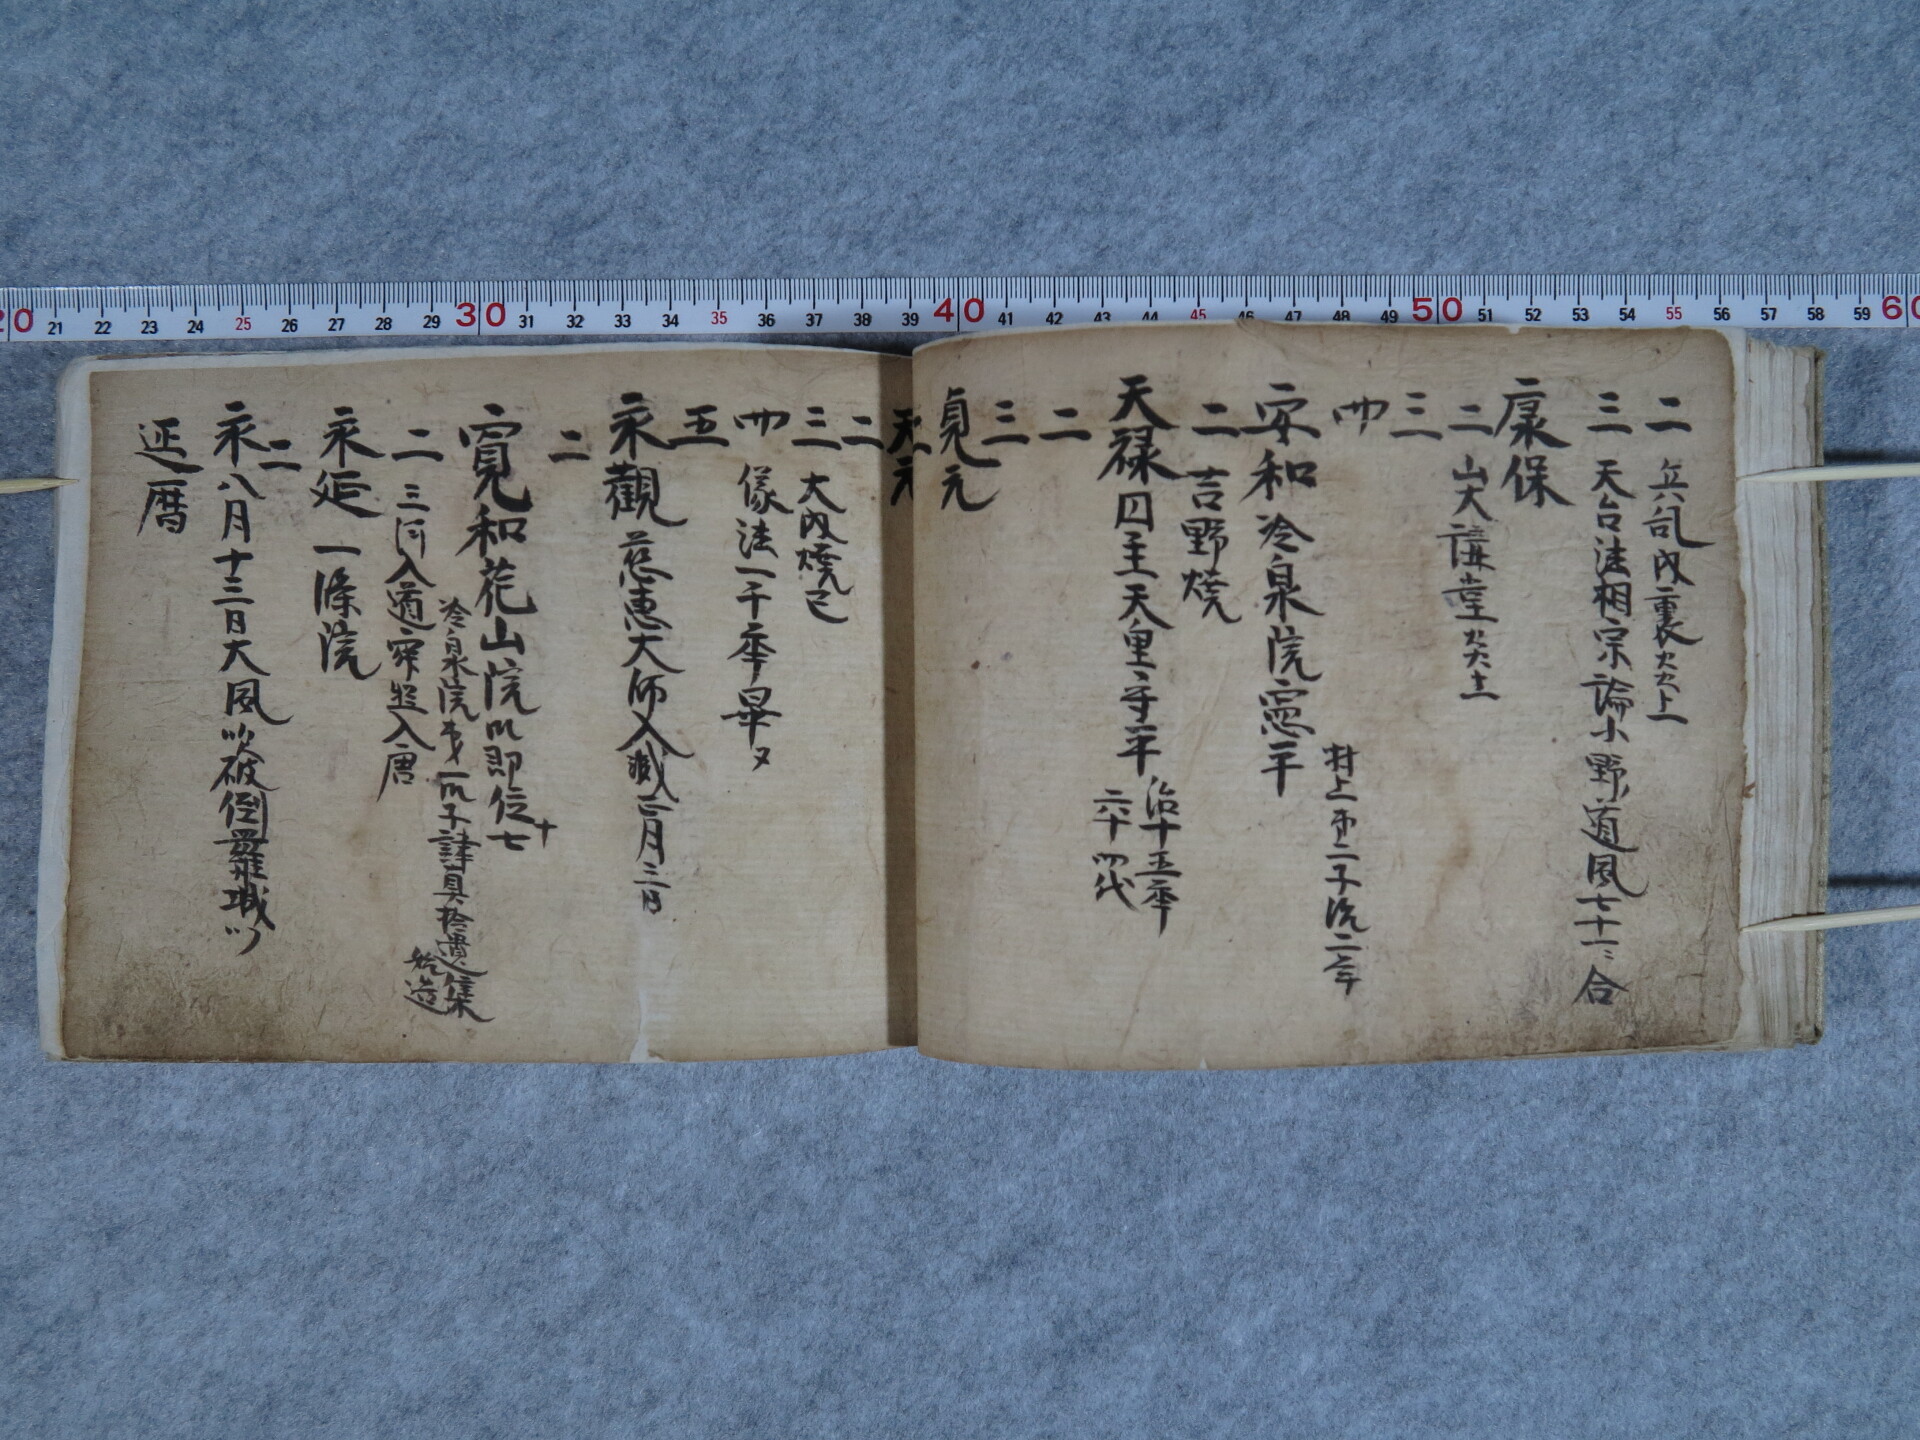 二 兵乱内裏火々上
三 天台法相宗論小野道風七十一 合
康保
二 山大講堂火々上
三
四
安和 冷泉院憲平
村上 二子 治二年
二 吉野焼
天禄 四王天皇 守平
治十五年
六十四代
二
三
貞元
天元
二
三 大内焼已
四 法一千年
五
永觀 慈恵大師入滅正月三日
二
寛和 花山院 即位十七
冷泉院 一 子諱具拾遺集
始造
二 三河入道寂照入唐
永延 一條院
二
永 八月十三日大風 吹破倒羅城
延暦
20 21 22 23 24 25 26 27 28 29 30 31 32 33 34 35 36 37 38 39 40 41 42 43 44 45 46 47 48 49 50 51 52 53 54 55 56 57 58 59 60